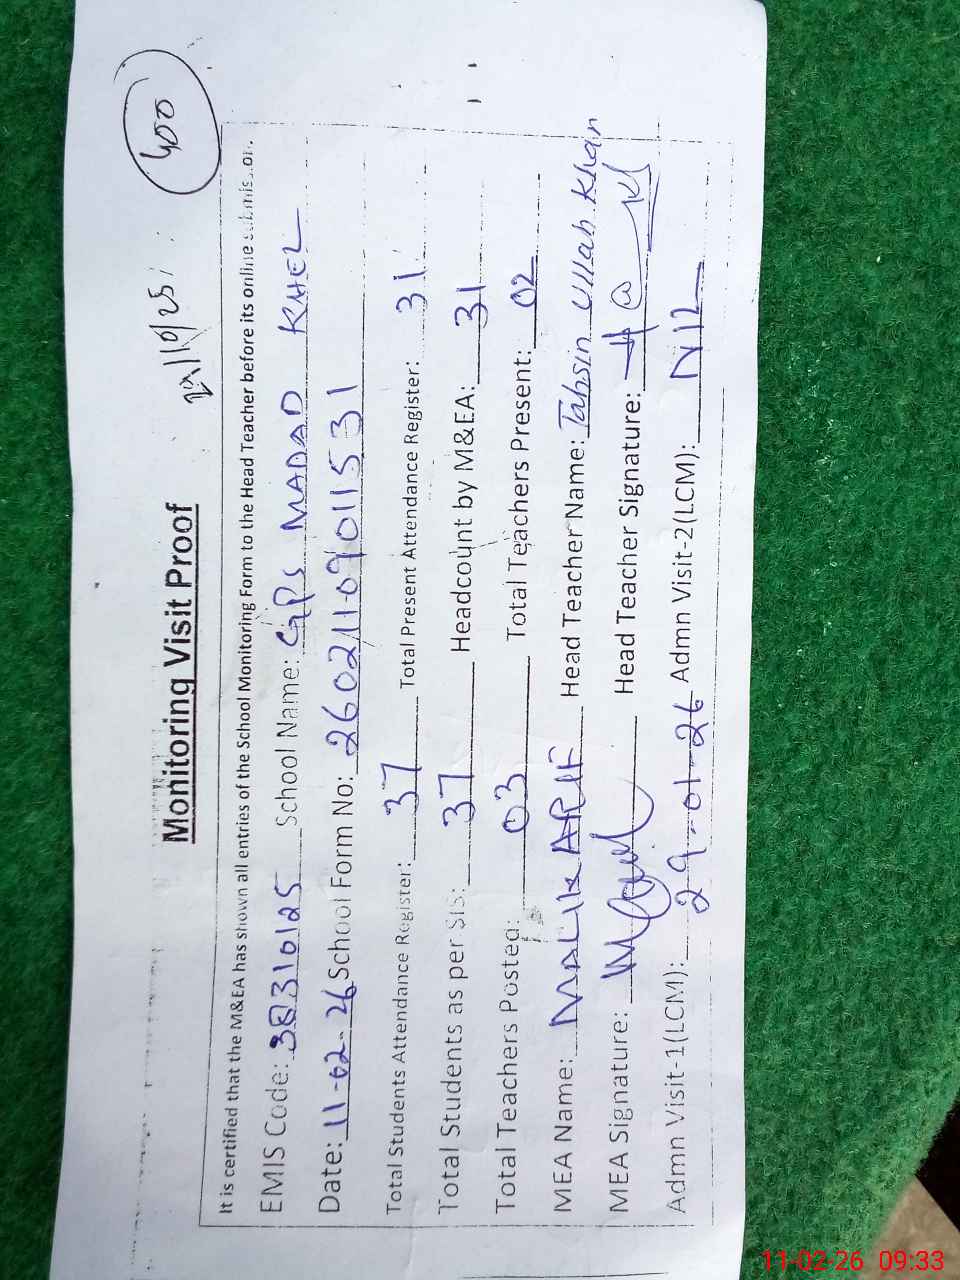 400
Monitoring Visit Proof
It is certified that the M&EA has shown all entries of the School Monitoring Form to the Head Teacher before its online
EMIS Code: 38310125 School Name: GPS MADAD KHEL
Date: 11-02-26 School Form No: 26021109011531
Total Students Attendance Register: 37 Total Present Attendance Register: 31
Total Students as per SIS: 37 Headcount by M&EA: 31
Total Teachers Posted: 03 Total Teachers Present: 02
MEA Name: MALIK ARIF Head Teacher Name: Tahsin Ullah Khan
MEA Signature: Head Teacher Signature:
Admn Visit-1(LCM): 29-01-26 Admn Visit-2(LCM): NIL
11-02-26 09:33